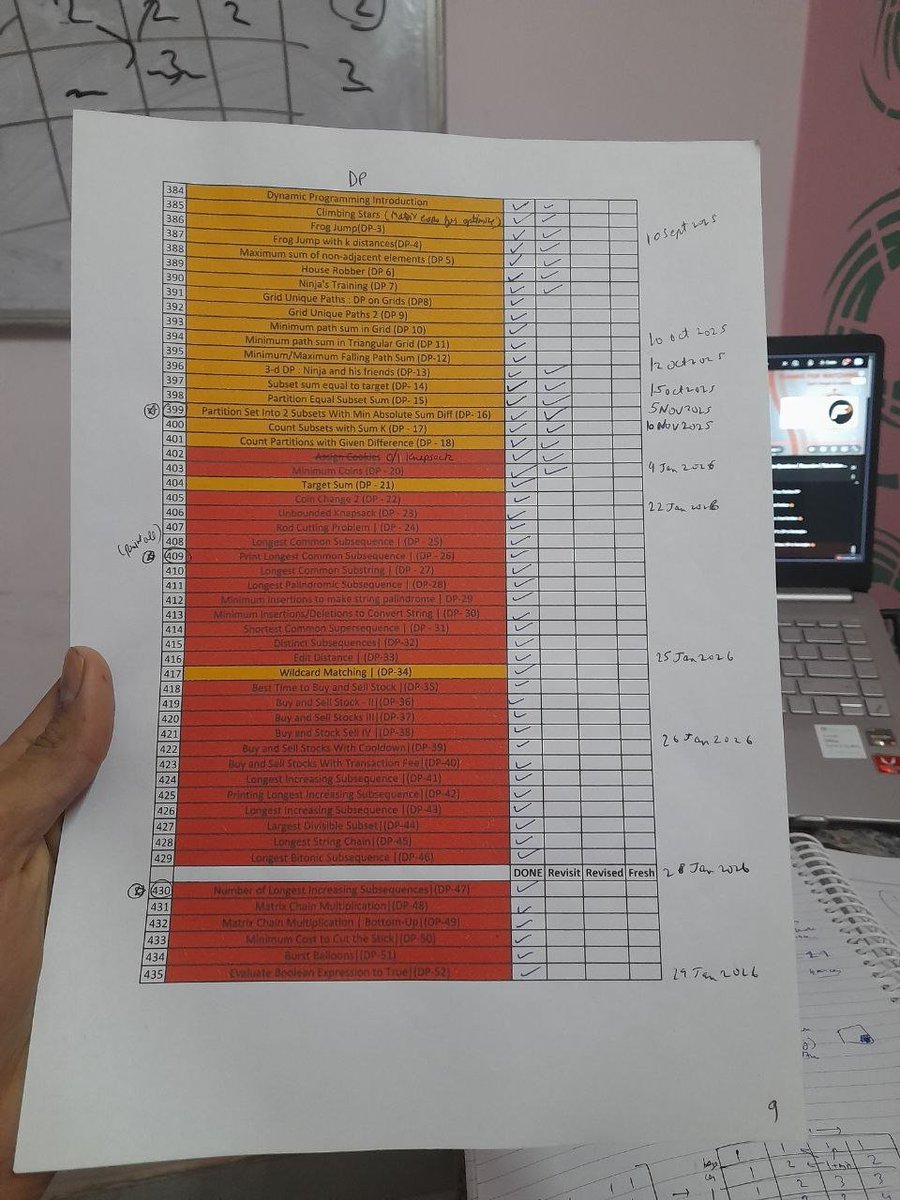 2 2 2 2
3 3
DP
384 Dynamic Programming Introduction
385 Climbing Stars
386 Frog Jump(DP-3)
387 Frog Jump with k distances(DP-4)
388 Maximum sum of non-adjacent elements (DP 5)
389 House Robber (DP 6)
390 Ninja's Training (DP 7)
391 Grid Unique Paths : DP on Grids (DP8)
392 Grid Unique Paths 2 (DP 9)
393 Minimum path sum in Grid (DP 10)
394 Minimum path sum in Triangular Grid (DP 11)
395 Minimum/Maximum Falling Path Sum (DP-12)
396 3-d DP : Ninja and his friends (DP-13)
397 Subset sum equal to target (DP - 14)
398 Partition Equal Subset Sum (DP - 15)
399 Partition Set Into 2 Subsets With Min Absolute Sum Diff (DP - 16)
400 Count Subsets with Sum K (DP - 17)
401 Count Partitions with Given Difference (DP - 18)
402 Assign Cookies 0/1 Knapsack
403 Minimum Coins (DP - 20)
404 Target Sum (DP - 21)
405 Coin Change 2 (DP - 22)
406 Unbounded Knapsack (DP - 23)
407 Rod Cutting Problem | (DP - 24)
408 Longest Common Subsequence | (DP - 25)
409 Print Longest Common Subsequence | (DP - 26)
410 Longest Common Substring | (DP - 27)
411 Longest Palindromic Subsequence | (DP-28)
412 Minimum insertions to make string palindrome | DP-29
413 Minimum Insertions/Deletions to Convert String | (DP- 30)
414 Shortest Common Supersequence | (DP - 31)
415 Distinct Subsequences| (DP-32)
416 Edit Distance | (DP-33)
417 Wildcard Matching | (DP-34)
418 Best Time to Buy and Sell Stock |(DP-35)
419 Buy and Sell Stock - II|(DP-36)
420 Buy and Sell Stocks III|(DP-37)
421 Buy and Stock Sell IV |(DP-38)
422 Buy and Sell Stocks With Cooldown|(DP-39)
423 Buy and Sell Stocks With Transaction Fee|(DP-40)
424 Longest Increasing Subsequence |(DP-41)
425 Printing Longest Increasing Subsequence|(DP-42)
426 Longest Increasing Subsequence |(DP-43)
427 Largest Divisible Subset|(DP-44)
428 Longest String Chain|(DP-45)
429 Longest Bitonic Subsequence |(DP-46)
DONE Revisit Revised Fresh
430 Number of Longest Increasing Subsequences|(DP-47)
431 Matrix Chain Multiplication|(DP-48)
432 Matrix Chain Multiplication | Bottom-Up|(DP-49)
433 Minimum Cost to Cut the Stick|(DP-50)
434 Burst Balloons|(DP-51)
435 Evaluate Boolean Expression to True|(DP-52)
10 Sept 2025
10 Oct 2025
12 Oct 2025
15 Oct 2025
5 Nov 2025
10 Nov 2025
9 Jan 2026
22 Jan 2026
25 Jan 2026
26 Jan 2026
28 Jan 2026
29 Jan 2026
9